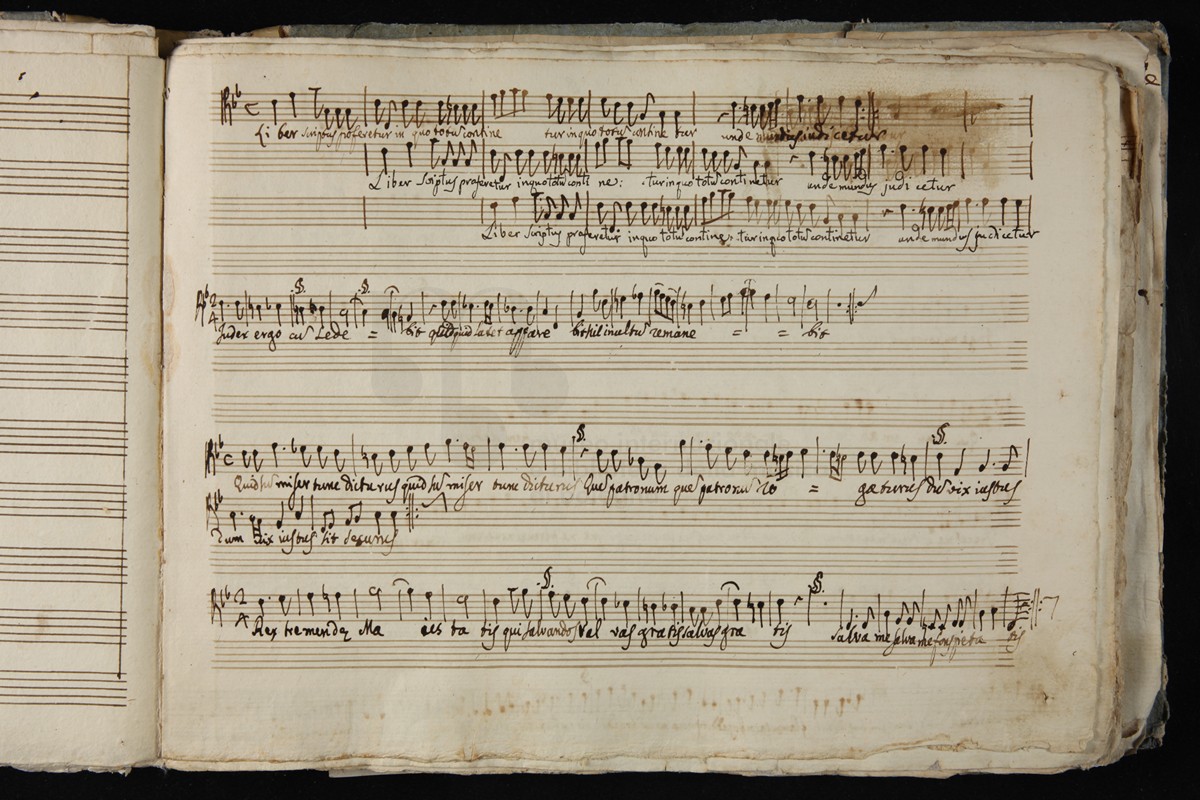 Li ber scriptus proferetur in quo totu contine tur in quo totu contine tur unde mundus judi cetur
Liber scriptus proferetur in quo totu conti ne: tur in quo totu continetur unde mundus judi cetur
Liber scriptus proferetur in quo totu contine, tur in quo totu continetur unde mundus judicetur
Judex ergo cu sede = bit quidquid latet appare bit nil inultu remane = = bit
Quid su miser tunc dicturus quid su miser tunc dicturus que patronum que patronu ro = gaturus du vix iustus
dum vix iustus sit securus
Rex tremendę Ma ies ta tis qui salvandos sal vas gratis salvas gra tis salva me salva me fons pieta tis